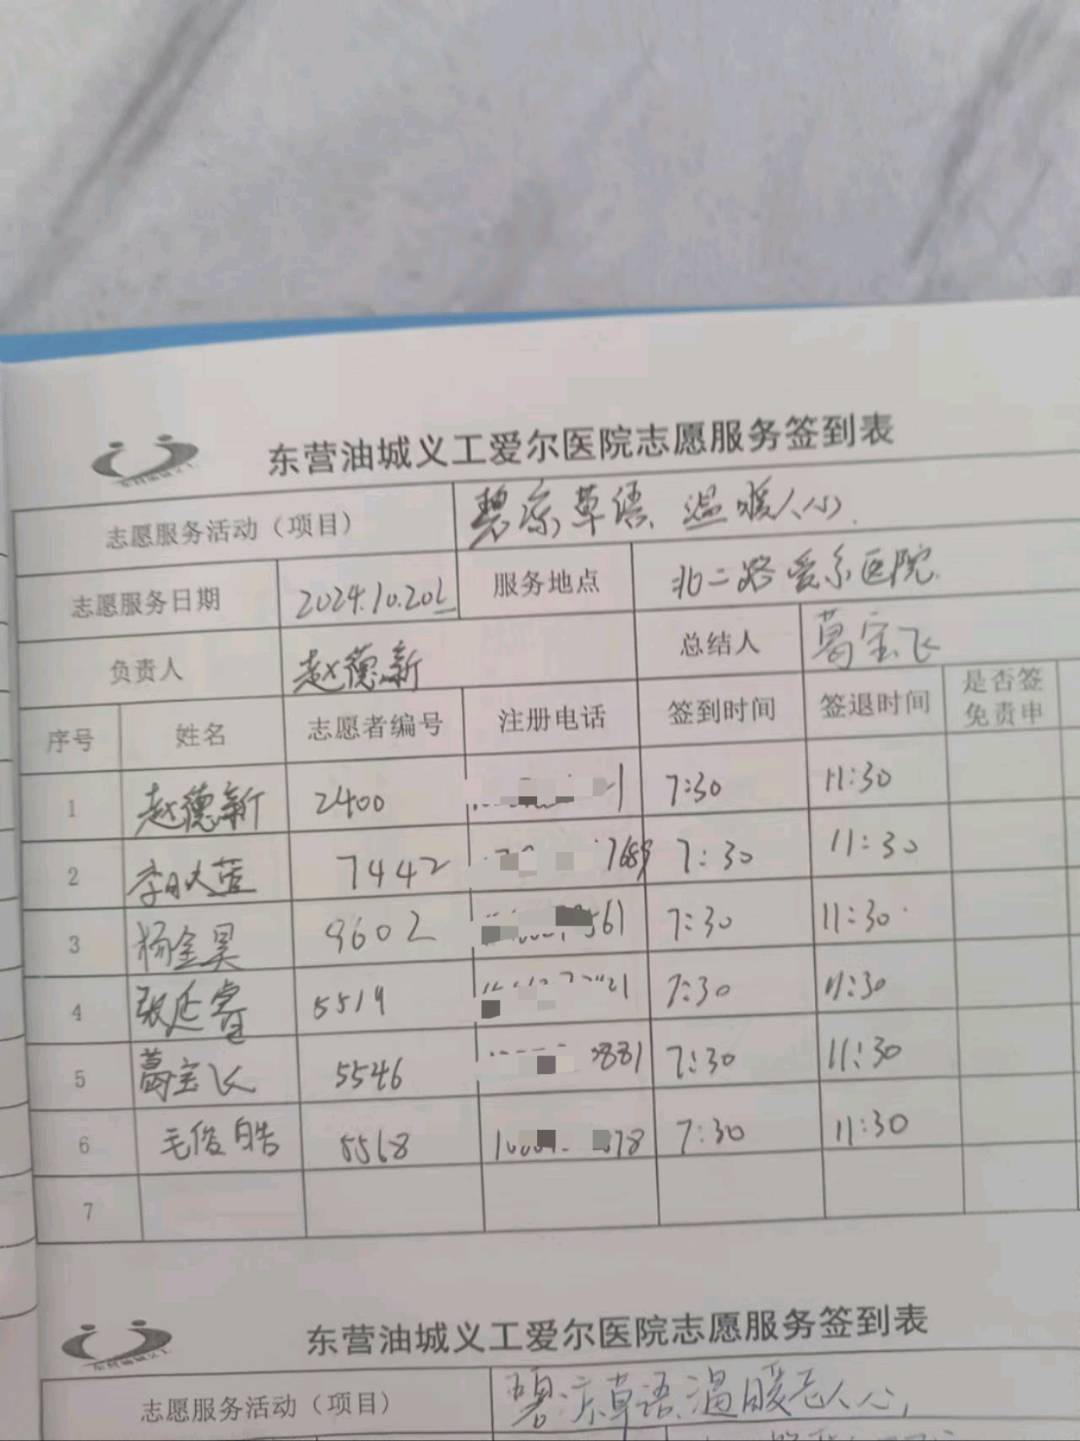 东营油城义工爱尔医院志愿服务签到表
志愿服务活动（项目） 碧凉草语 温暖人心
志愿服务日期 2024.10.20 服务地点 北二路爱尔医院
负责人 赵德新 总结人 葛宝飞
序号 姓名 志愿者编号 注册电话 签到时间 签退时间 是否签
免责申
1 赵德新 2400 1 7:30 11:30
2 7442 7:30 11:30
3 杨金昊 9602 561 7:30 11:30
4 张延睿 5519 21 7:30 11:30
5 葛宝飞 5546 881 7:30 11:30
6 毛俊皓 5568 78 7:30 11:30
7
东营油城义工爱尔医院志愿服务签到表
志愿服务活动（项目） 碧凉草语 温暖老人心